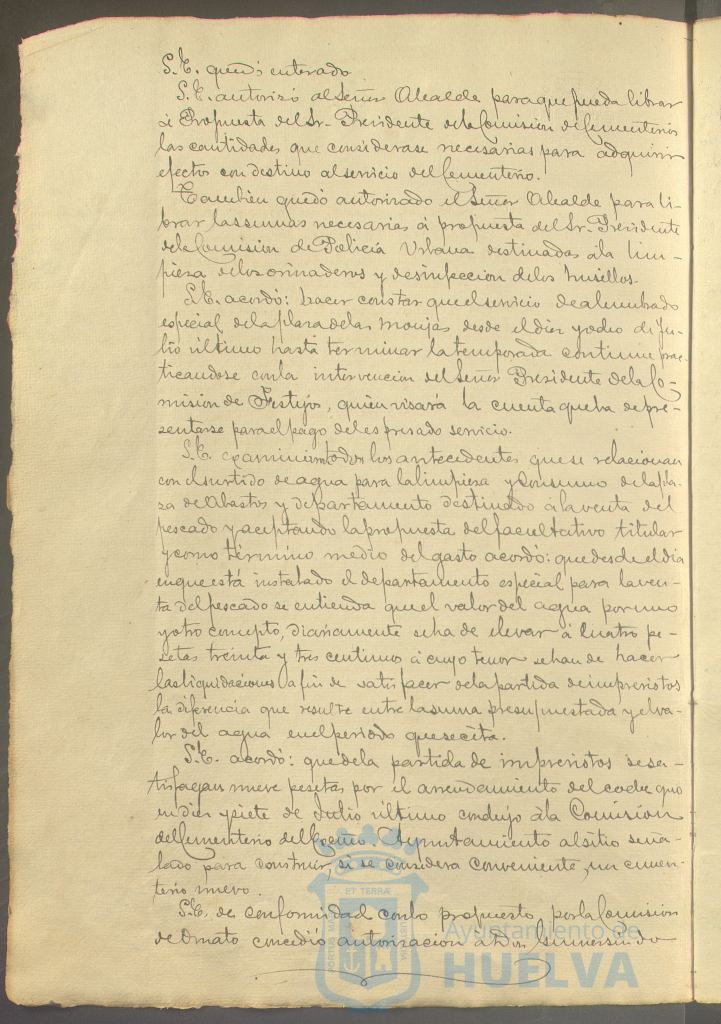 S.E. quedó enterado
S.E. autorizó al Señor Alcalde para que pueda librar
á Propuesta del Sr. Presidente de la Comisión de Cementerios
las cantidades que considerase necesarias para adquirir
efectos con destino al servicio del Cementerio.
Tambien quedó autorizado el Señor Alcalde para li-
brar las sumas necesarias á propuesta del Sr. Presidente
de la Comisión de Policía Urbana destinadas á la lim-
pieza de los orinaderos y desinfeccion de los husillos.
S.E. acordó: hacer constar que el servicio de alumbrado
especial de la plaza de las monjas desde el diez y ocho de Ju-
lio último hasta terminar la temporada continue prac-
ticandose con la intervencion del Señor Presidente de la Co-
mision de Festejos, quien visará la cuenta que ha de pre-
sentarse para el pago del espresado servicio.
S.E. los antecedentes que se relacionan
con el surtido de agua para la limpieza y consumo de la pla-
za de Abastos y departamento destinado á la venta del
pescado y aceptando la propuesta del facultativo titular
y como término medio del gasto acordó: que desde el dia
en que está instalado el departamento especial para la ven-
ta del pescado se entienda que el valor del agua por uno
y otro concepto, diariamente se ha de elevar á Cuatro pe-
setas treinta y tres centimos á cuyo tenor se han de hacer
las liquidaciones a fin de satisfacer de la partida de imprevistos
la diferencia que resulte entre la suma presupuestada y el va-
lor del agua en el periodo que se cita.
S.E. acordó: que de la partida de imprevistos se sa-
tisfagan nueve pesetas por el arrendamiento del coche que
en diez y siete de Julio último condujo á la Comision
del Cementerio del Excmo. Ayuntamiento al sitio seña-
lado para construir, si se considera conveniente, un cemen-
terio nuevo.
S.E. de conformidad con lo propuesto por la Comision
de Ornato concedió autorizacion á Don Gumersindo
ET TERRÆ
Ayuntamiento de
HUELVA